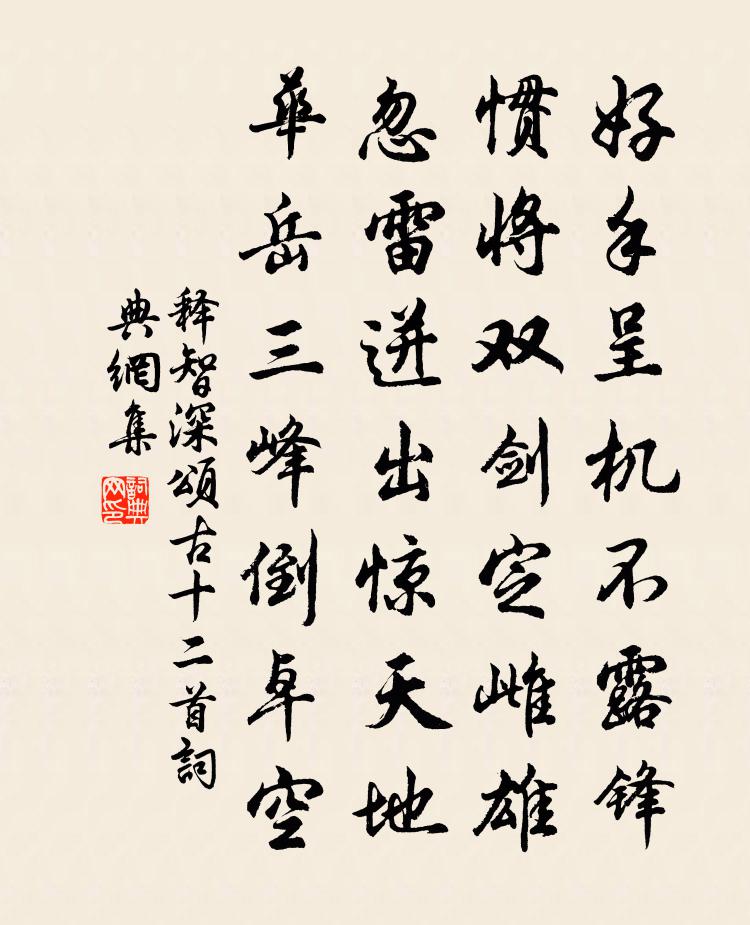 好手呈机不露锋
惯将双剑定雌雄
忽雷迸出惊天地
華岳三峰倒卓空
释智深頌古十二首詞
典網集
詞典网印